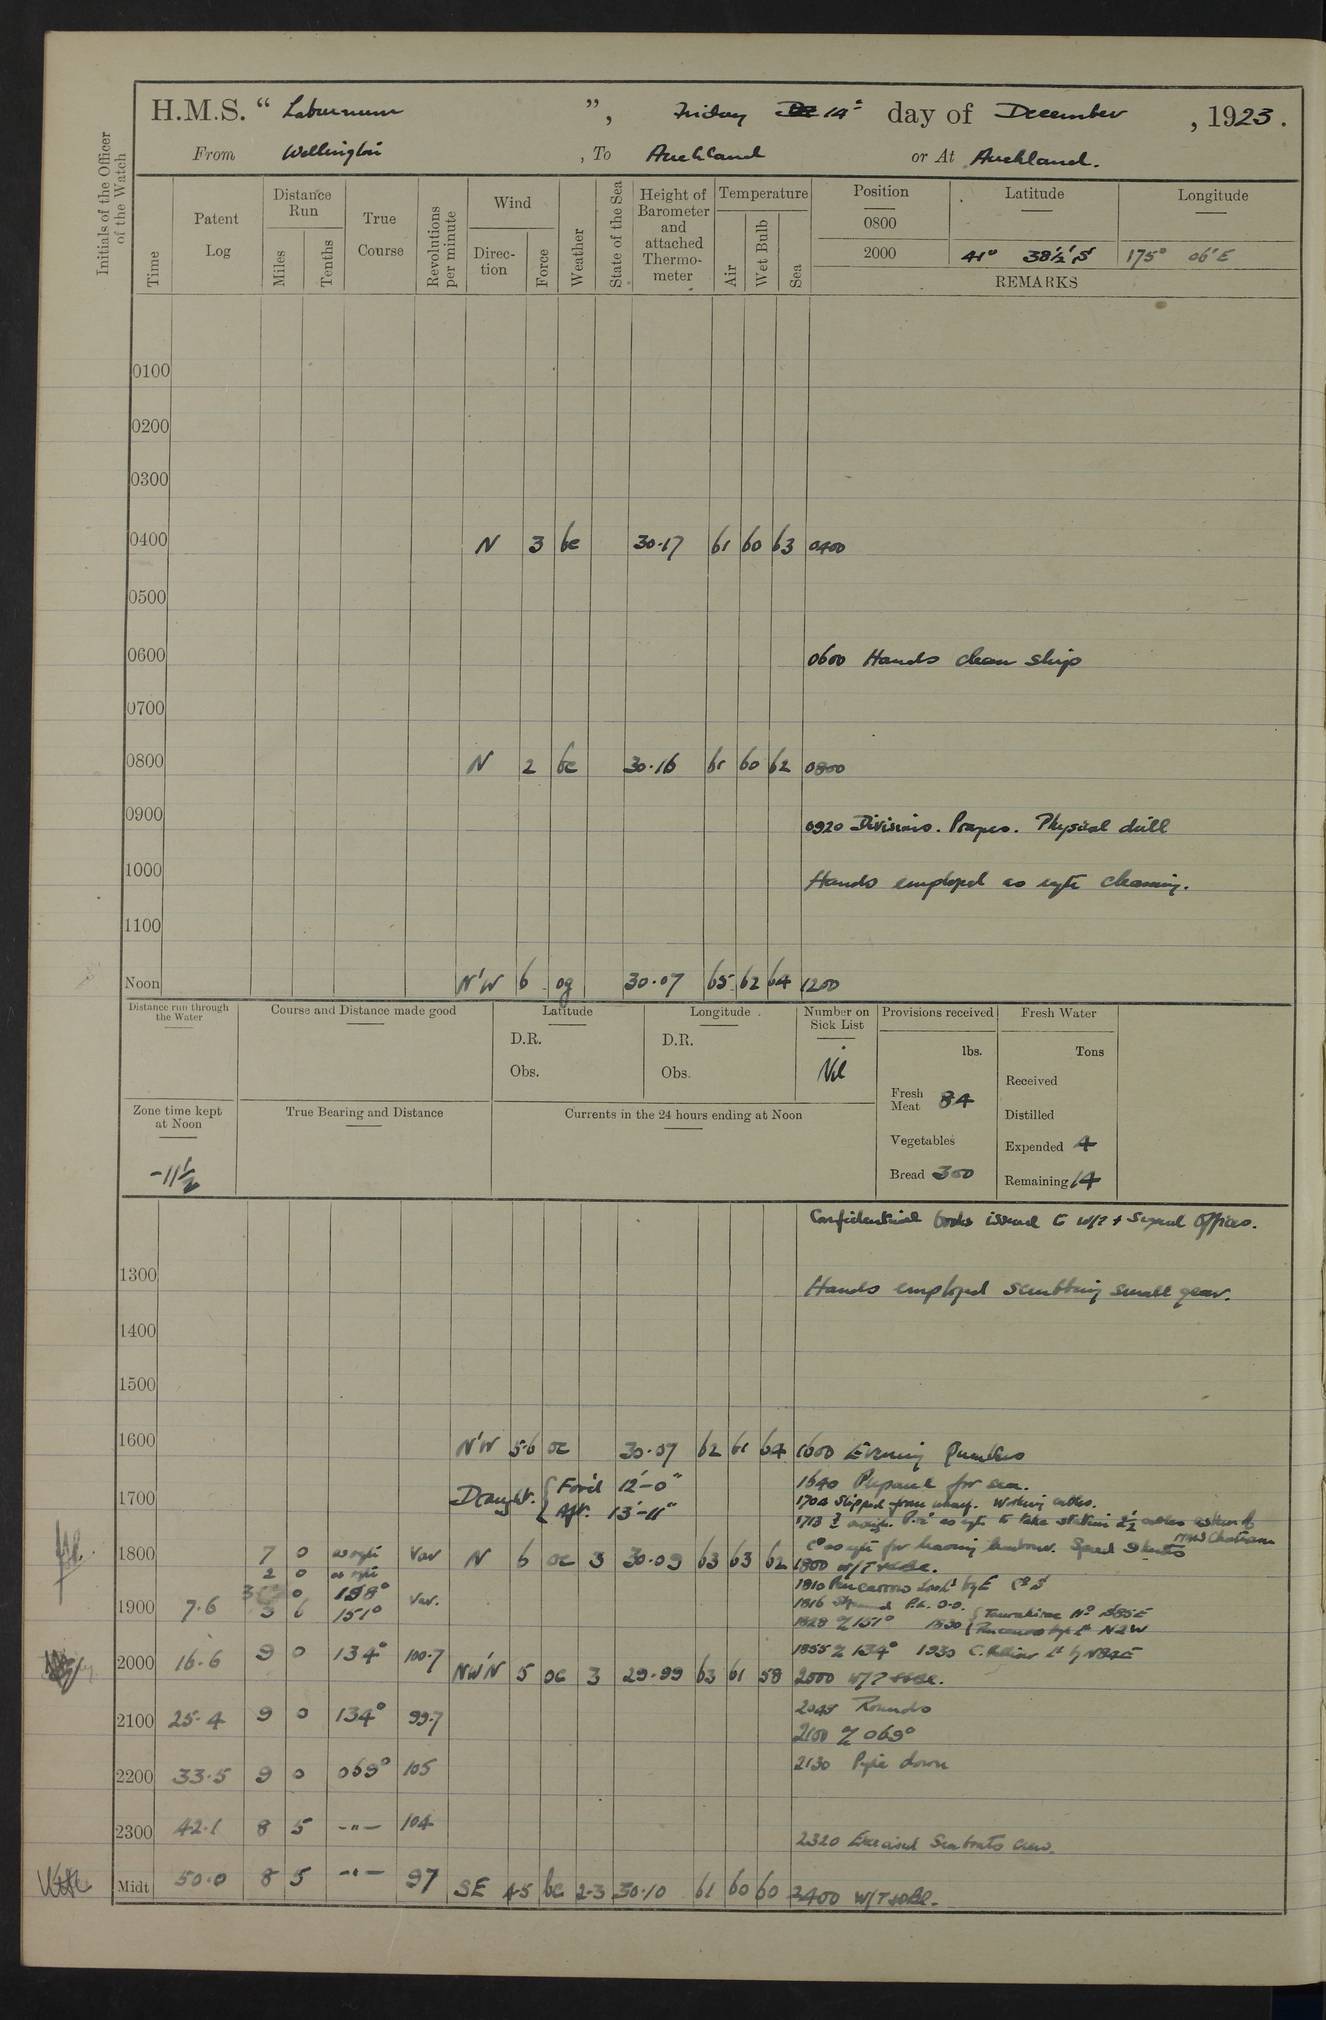 H.M.S. “ Laburnum ”, Friday 14th day of December , 1923.
From Wellington , To Auckland or At Auckland.
Initials of the Officer of the Watch
Time
Patent Log
Distance Run
Miles
Tenths
True Course
Revolutions per minute
Wind
Direc- tion
Force
Weather
State of the Sea
Height of Barometer and attached Thermo- meter
Temperature
Air
Wet Bulb
Sea
Position Latitude Longitude
0800
2000 41° 38½' S 175° 06' E
REMARKS
0100
0200
0300
0400 N 3 bc 30.17 61 60 63 0400
0500
0600 0600 Hands clean ship
0700
0800 N 2 bc 30.16 61 60 62 0800
0900 0920 Divisions. Prayers. Physical drill
1000 Hands employed as reqte cleaning.
1100
Noon N'W 6 og 30.07 65 62 64 1200
Distance run through the Water
Course and Distance made good
Latitude
D.R.
Obs.
Longitude
D.R.
Obs.
Number on Sick List
Nil
Provisions received
lbs.
Fresh Meat 84
Vegetables
Bread 300
Fresh Water
Tons
Received
Distilled
Expended 4
Remaining 14
Zone time kept at Noon
-11½
True Bearing and Distance
Currents in the 24 hours ending at Noon
Confidential books issued to W/T + Signal Offices.
1300 Hands employed scrubbing small gear.
1400
1500
1600 N'W 5-6 oc 30.07 62 61 64 1600 Evening Quarters
1640 Prepared for sea.
1700 Draught. { For'd 12'-0" Aft. 13'-11" 1704 Slipped from wharf. Working cables.
1713 as reqte to take station 2½ cables astern of HMS Chatham
Co as reqte for leaving harbour. Speed 9 knots
1800 7 0 as reqte Var N 6 oc 3 30.09 63 63 62 1800 W/T
2 0 as reqte 1810 Pencarrow
0 198° 1816 P.L. 0.0.
1900 7.6 3 6 151° Var. 1828 151° 1830
1855 134° 1930
2000 16.6 9 0 134° 100.7 NW'N 5 oc 3 29.99 63 61 58 2000 W/T
2045 Rounds
2100 25.4 9 0 134° 99.7 2100 069°
2130 Pipe down
2200 33.5 9 0 069° 105
2300 42.1 8 5 -"- 104
2320 Exercised Seaboats crew.
Midt 50.0 8 5 -"- 97 SE 4-5 bc 2-3 30.10 61 60 60 2400 W/T